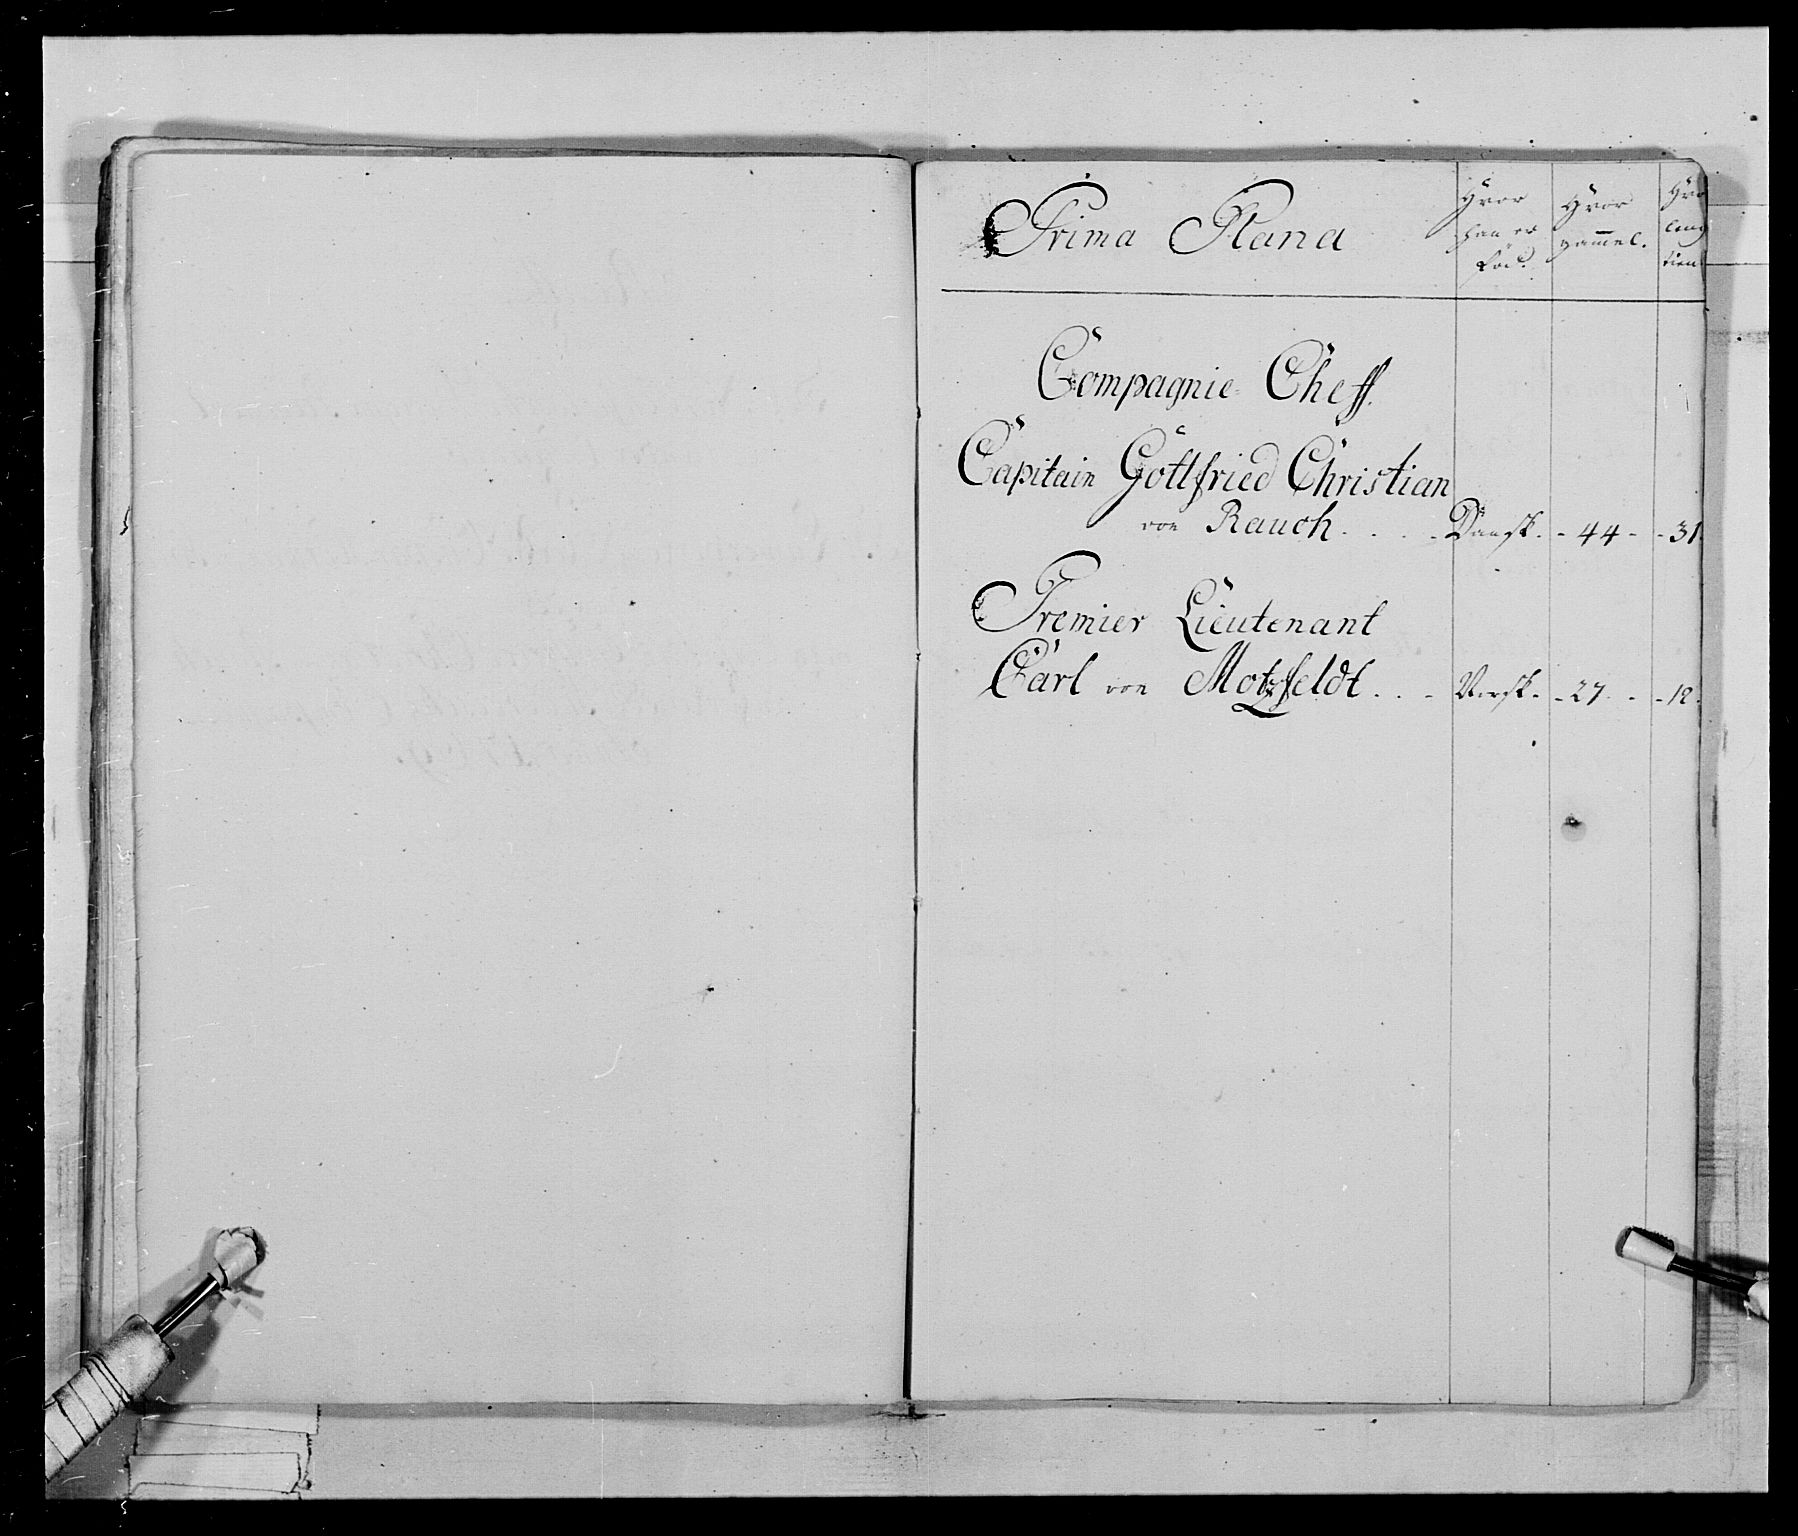 Prima Plana
Hvor han er Föd.
Hvor gammel.
Hvo leng tien
Compagnie Cheff.
Capitain Gottfried Christian
von Rauch. . . . Dansk. - 44 - - 31.
Premier Lieutenant
Carl von Motzfeldt. . . Norsk. - 27. . - 12.